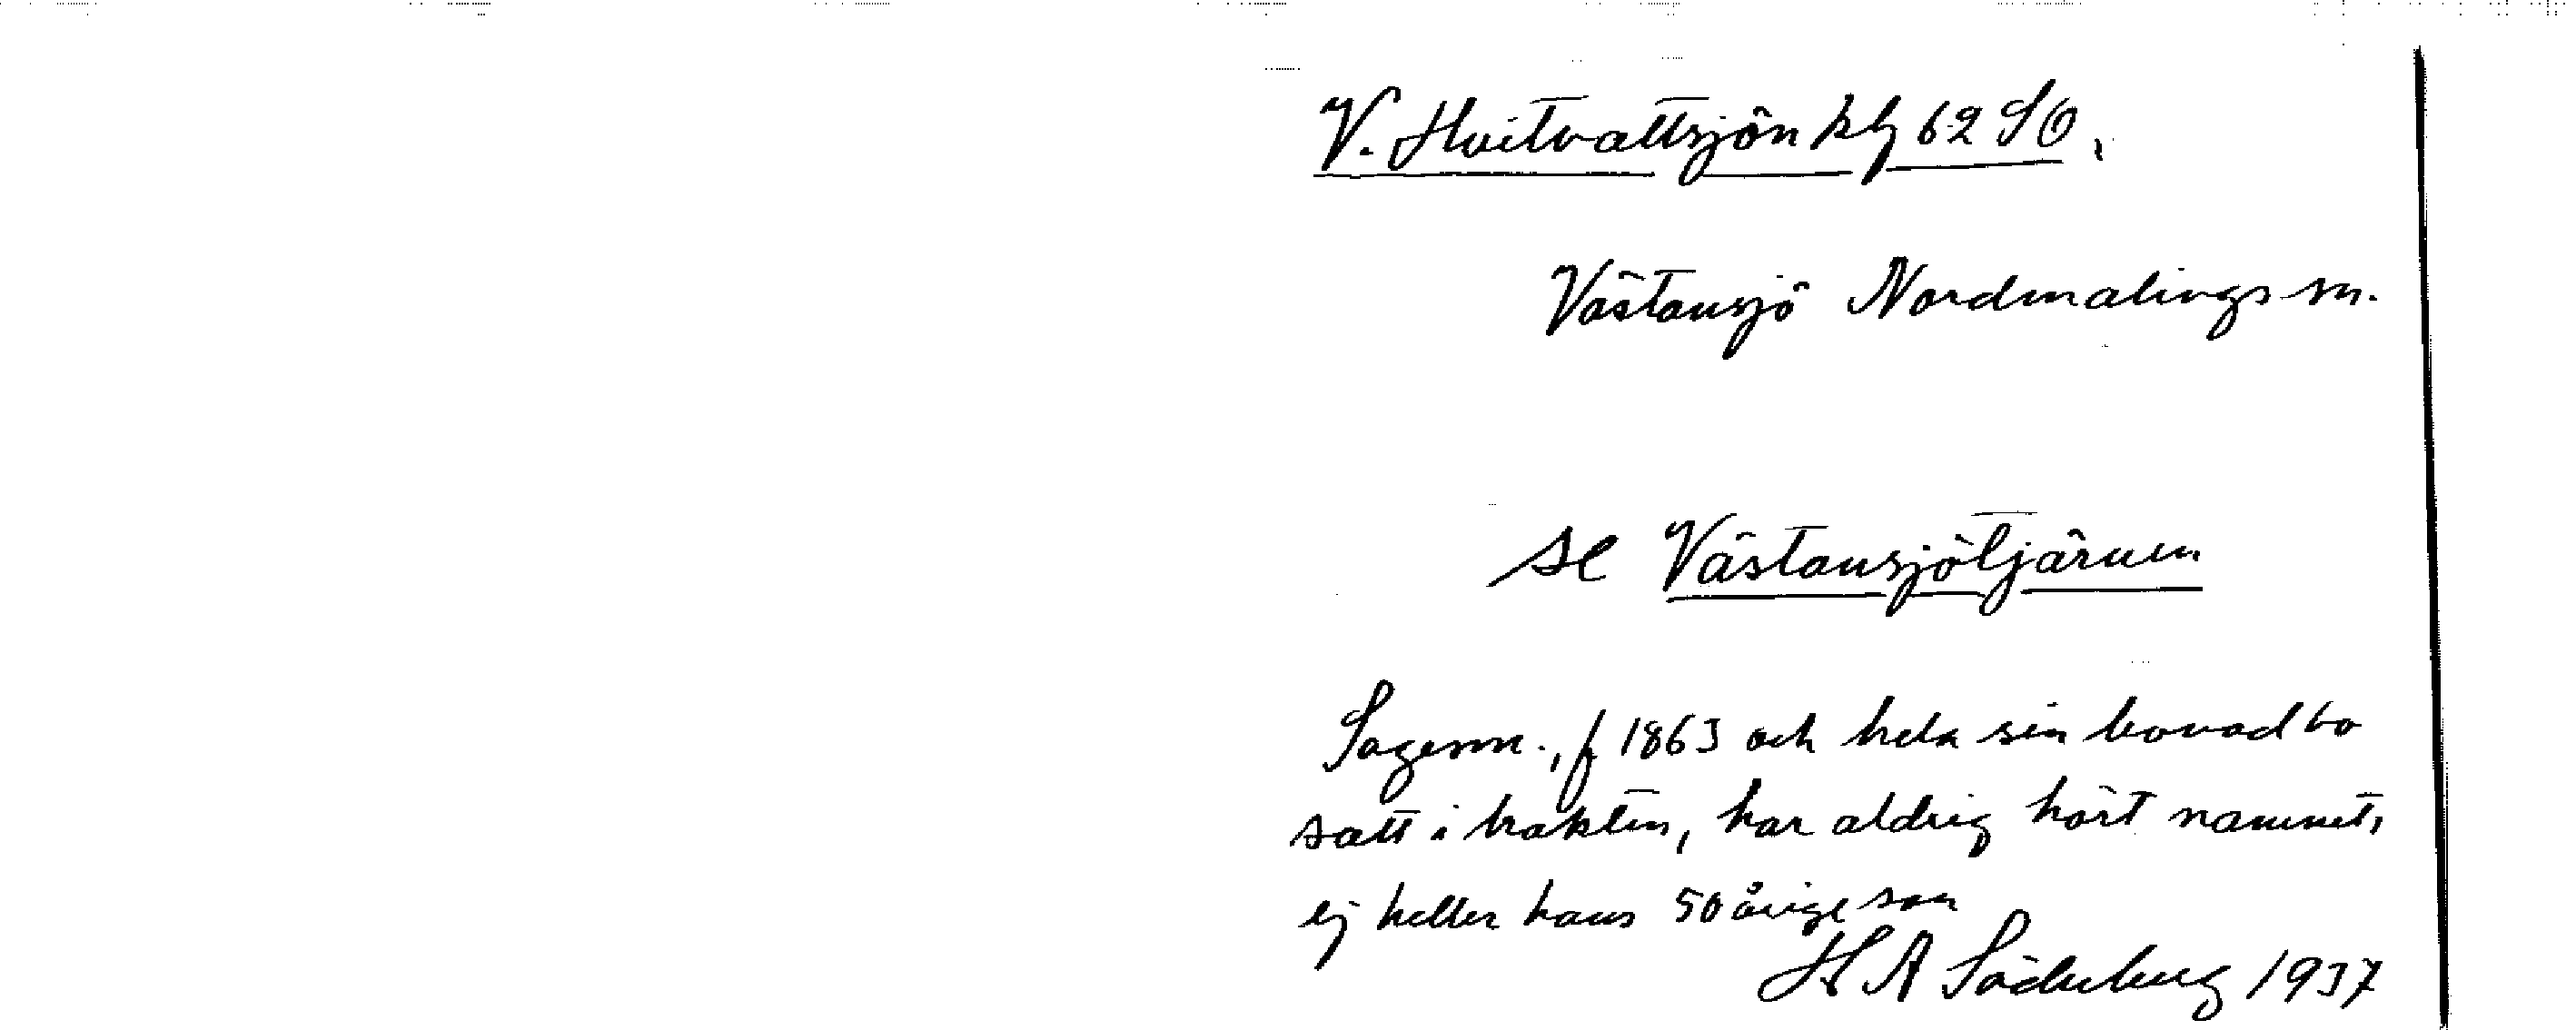 V. Hvitvattsjön kbl 62 SO.
Västansjö Nordmalings sn.
se Västansjötjärnen
Sagesm., f 1863 och hela sin levnad bo
satt i trakten, har aldrig hört namnet,
ej heller hans 50 årige son
H A Söderberg 1937